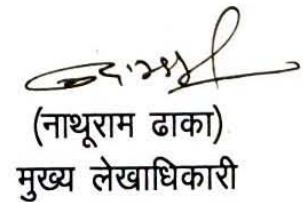 (नाथूराम ढाका)
मुख्य लेखाधिकारी